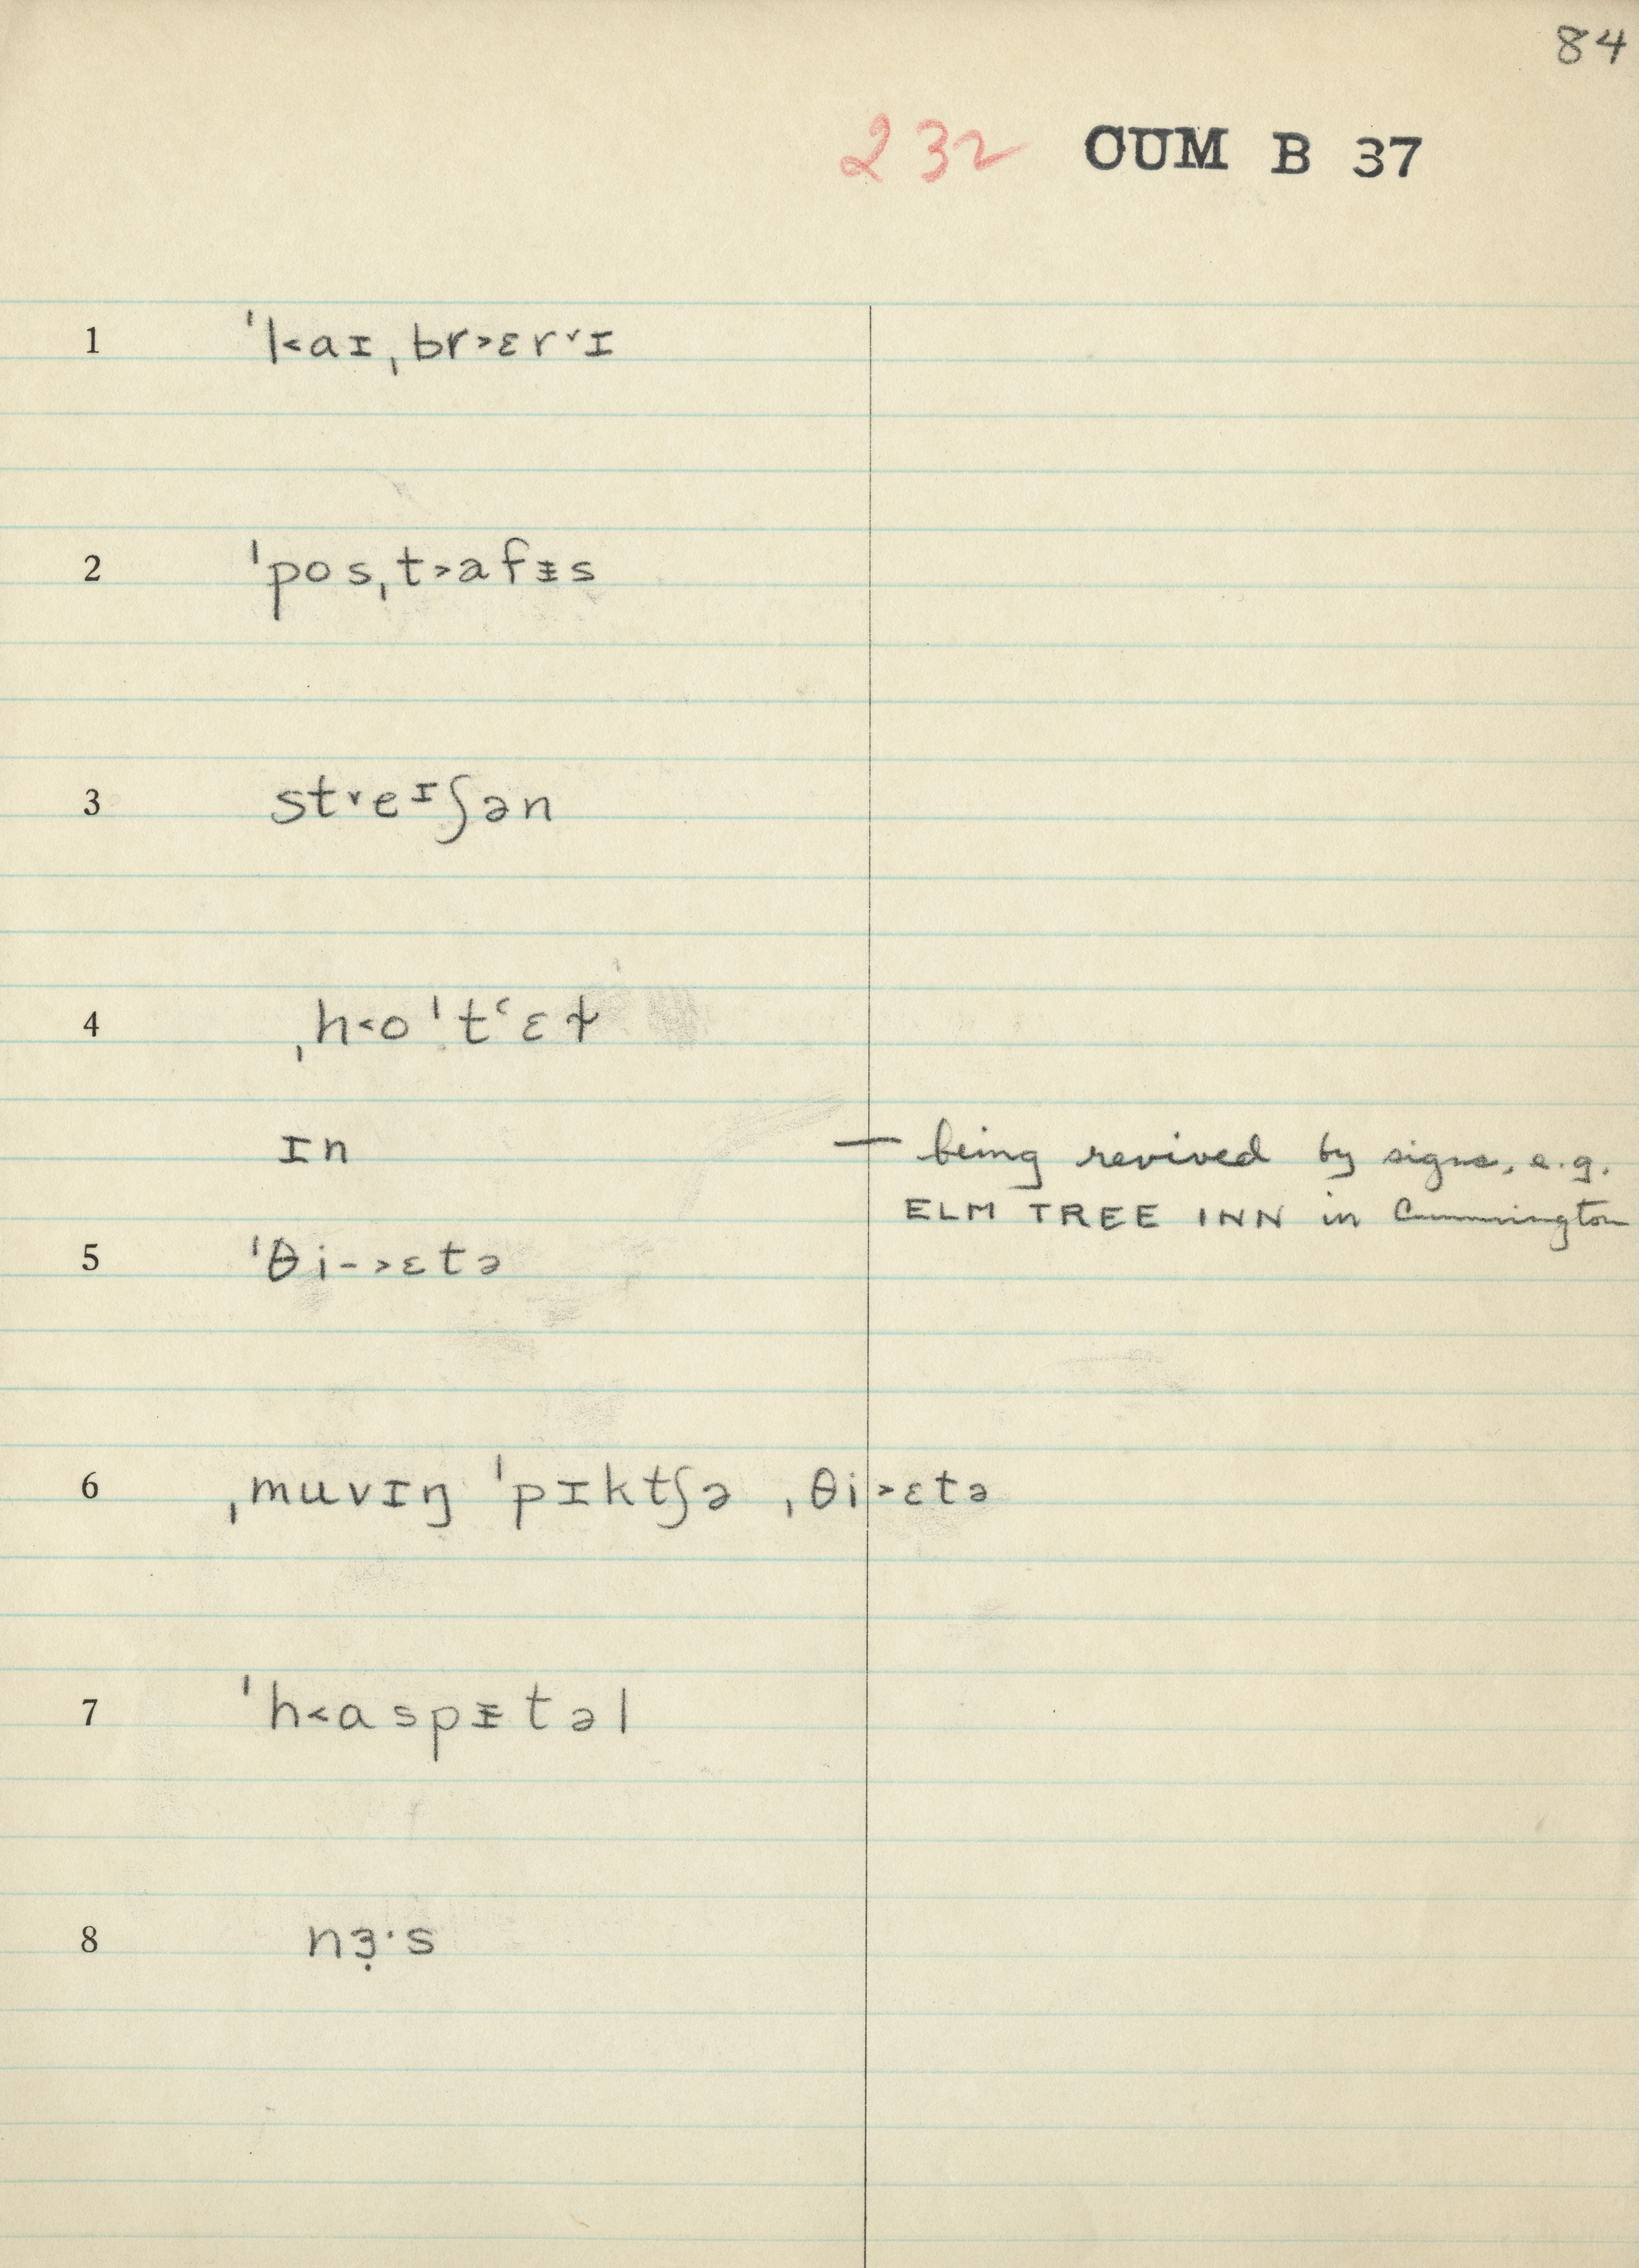 84
232 CUM B 37
1 ˈl˂aɪˌbr˃ɛr˅ɪ
2 ˈposˌt˃afᵻs
3 st˅eᶦʃən
4 ˌh˂oˈtʻɛɫ
ɪn — being revived by signs, e.g.
ELM TREE INN in Cummington
5 ˈθi-˃ɛtə
6 ˌmuvɪŋ ˈpɪktʃə ˌθi˃ɛtə
7 ˈh˂aspᵻtəl
8 nɜ̣·s